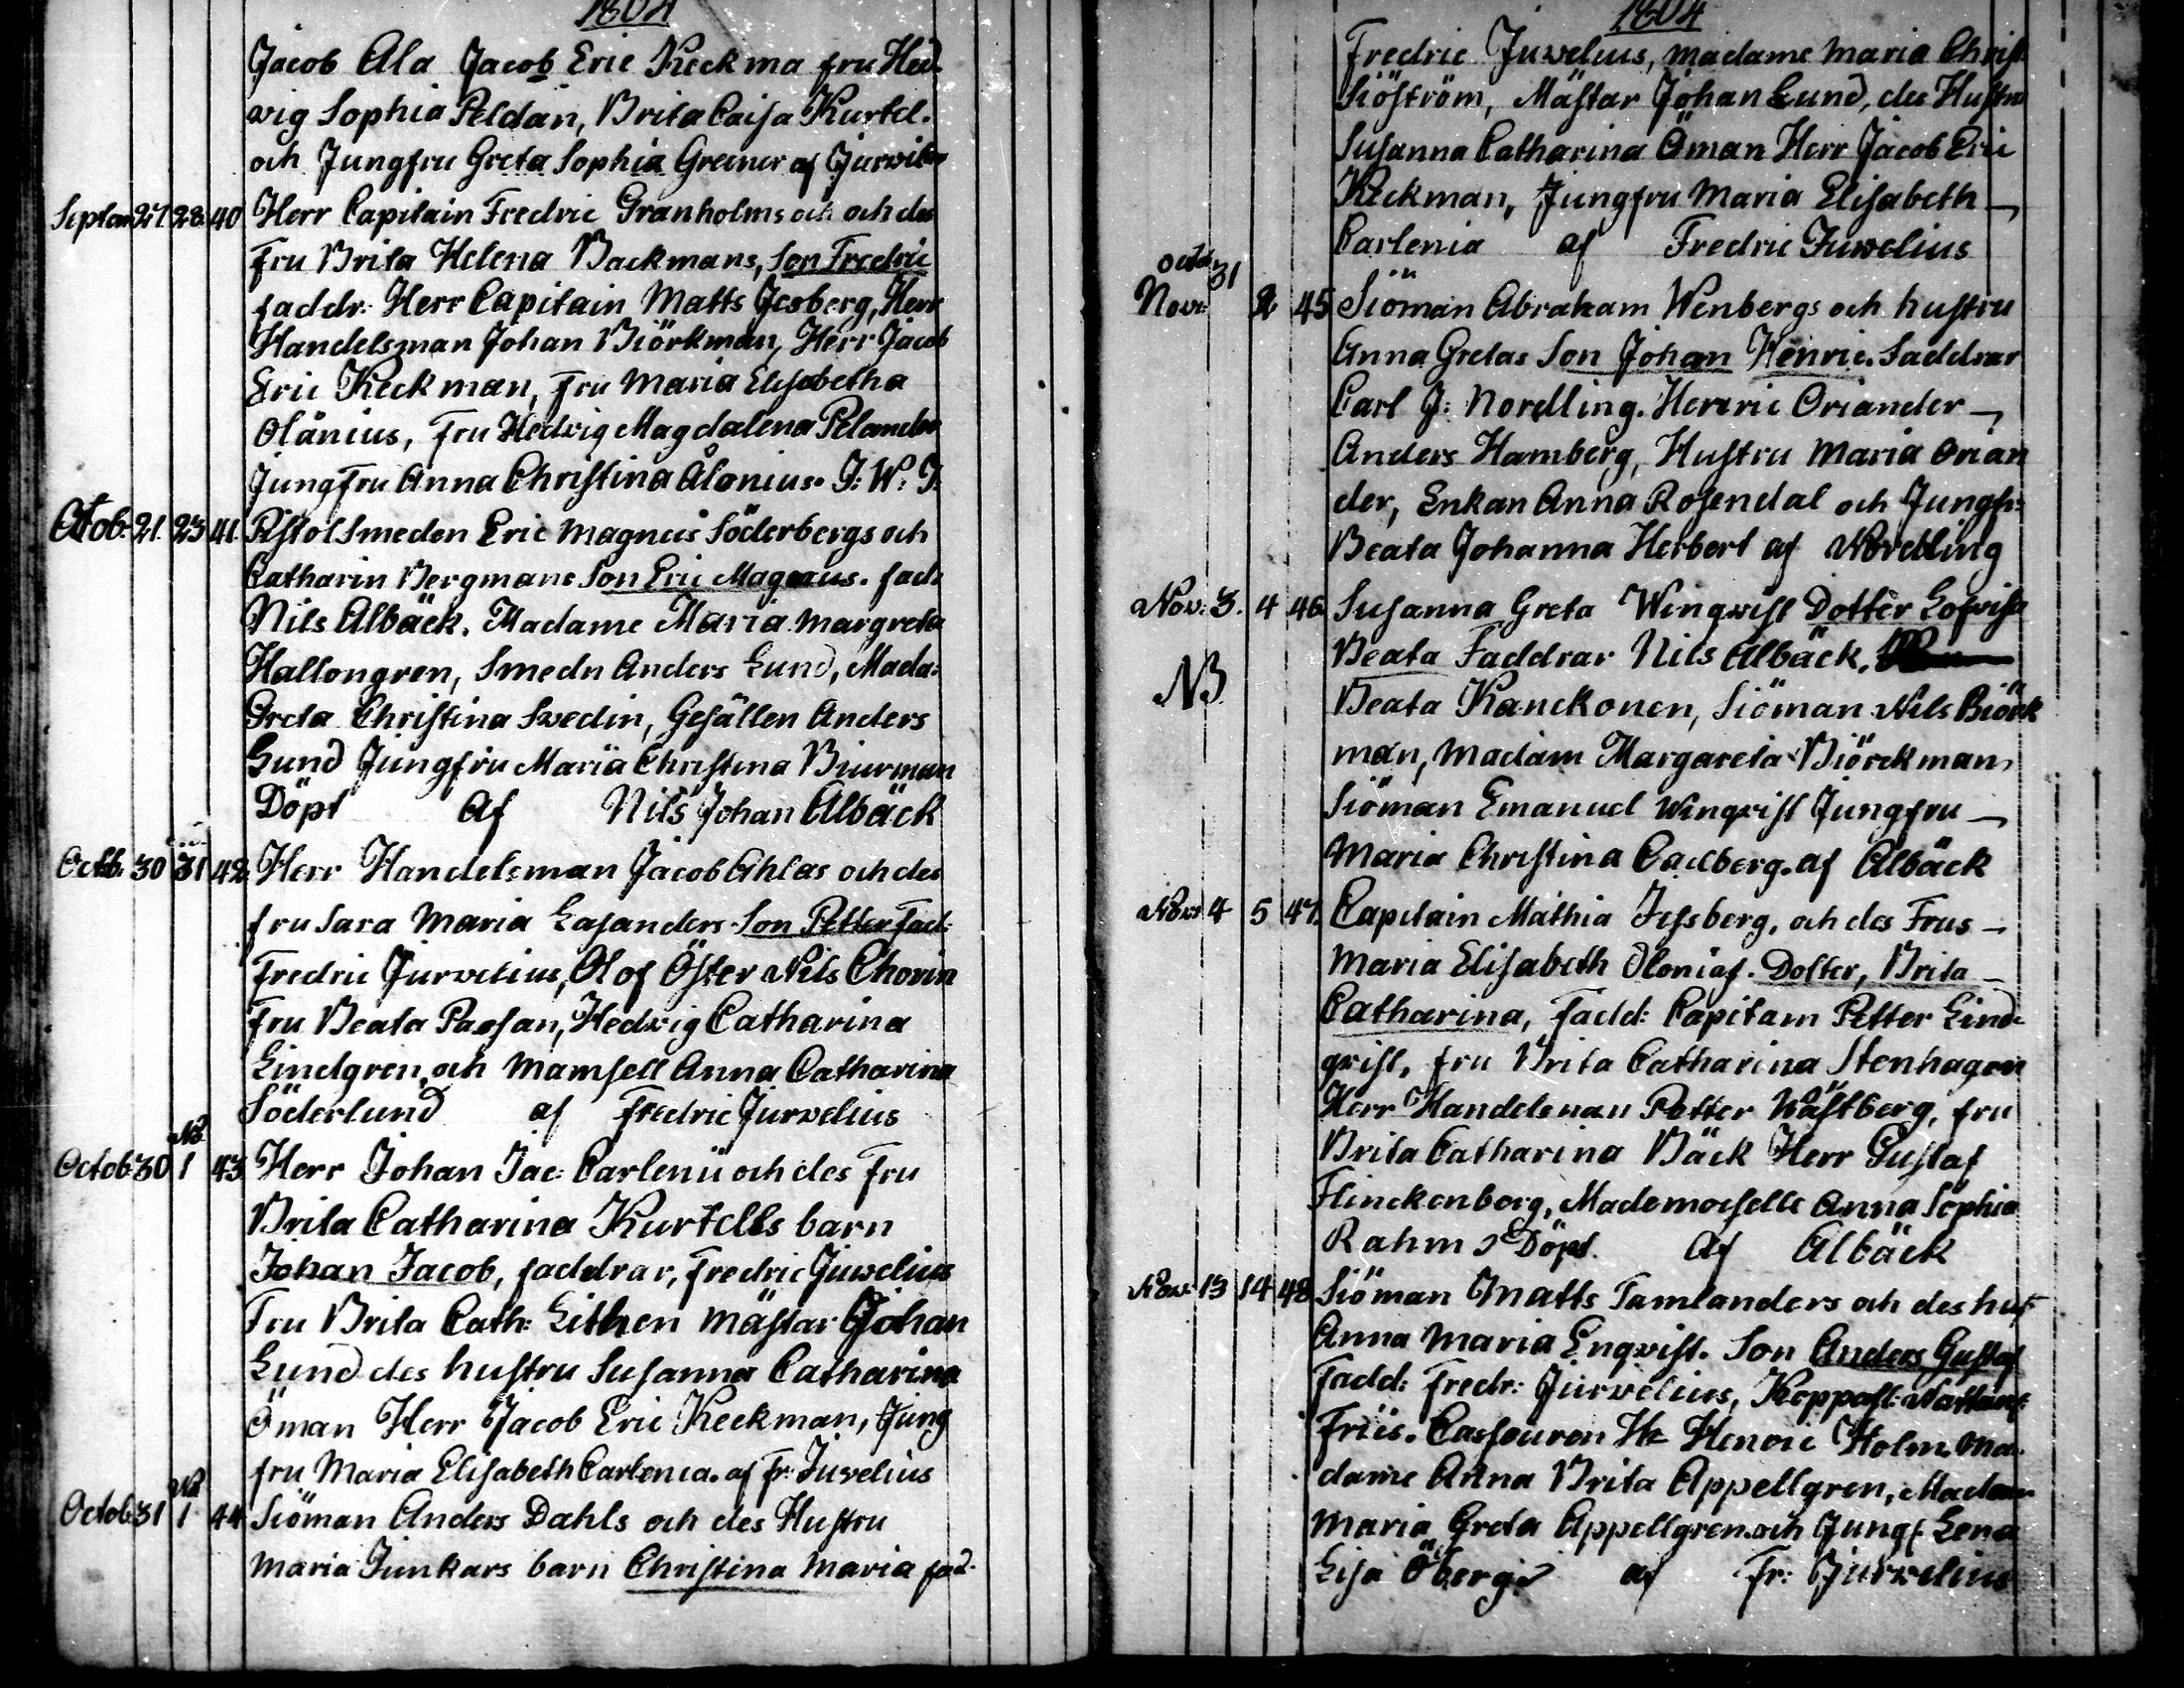 1804
Jacob Ala Jacob Eric Keckma fru Hed
wig Sophia Peldán, Brita Caisa Kurtel.
och Jungfru Greta Sophia Greiner af Juvelius
Septem 27. 28. 40 Herr Capitain Fredric Granholms och och des
Fru Brita Helena Backmans, Son Fredric
faddr: Herr Capitain Matts Jesberg, Herr
Handelsman Johan Biörkman, Herr Jacob
Eric Keckman, Fru Maria Elisabetha
Olånius, Fru Hedvig Magdalena Pelander
Jungfru Anna Christina Ålonius. J: W: J.
Octob: 21. 23 41. Pistolsmeden Eric Magnus Söderbergs och
Catharin Bergmans Son Eric Magnus. fad:
Nils Albäck. Madame Maria Margreta
Hallongren, Smedn Anders Lund, Mada:
Greta Christina Swedin, Gesällen Anders
Lund Jungfru Maria Christina Biurman
Döpt af Nils Johan Albäck
Octb: 30 31 42 Herr Handelsman Jacob Ahlas och des
fru Sara Maria Lasanders Son Petter Fad:
Fredric Jurvelius, Olof Öster Nils Chorin
Fru Beata Paosan, Hedvig Catharina
Lindgren, och Mamsell Anna Catharina
Söderlund af Fredric Jurvelius
Octob: 30 No 1 43. Herr Johan Jac: Carlenii och des fru
Brita Catharina Kurtells barn
Johan Jacob, faddrar, Fredric Juvelius
Fru Brita Cath: Lithen Mästar Johan
Lund des hustru Susanna Catharina
Öman Herr Jacob Eric Keckman, Jung
fru Maria Elisabeth Carlenia. af Fr: Juvelius
Octob 31 No 1 44 Siöman Anders Dahls och des Hustru
Maria Junkars barn Christina Maria fad.
1804
Fredric Juvelius, Madame Maria Christ
Siöström, Mästar Johan Lund, des Hustru
Susanna Catharina Öman Herr Jacob Eric
Keckman, Jungfru Maria Elisabeth
Carlenia af Fredric Juwelius
Octob 31
Nov: 2 45 Siöman Abraham Wenbergs och hustru
Anna Gretas Son Johan Henric. Faddrar
Carl J: Nordling. Henric Oriander
Anders Hamberg, Hustru Maria Orian
der, Enkan Anna Rosendal och Jungfr:
Beata Johanna Herbert af Nordling
Nov: 3. 4 46. Susanna Greta Wingwist Dotter Lofvisa
Beata Faddrar Nils Albäck.
NB
Beata Kanckonen, Siöman Nils Biörk
man, Madam Margareta Biörckman,
Siöman Emanuel Wingvist Jungfru
Maria Christina Cadberg. af Albäck
Nov: 4 5 47. Capitain Mathia Jessberg, och des Frus
Maria Elisabeth Oloniaf. Dotter, Brita
Catharina, Fadd: Capitam Petter Lind
qvist, fru Brita Catharina Stenhagen
Herr Handelsman Petter Wästberg, fru
Brita Catharina Bäck Herr Gustaf
Flinckenberg, Mademoiselle Anna Sophia
Rahm Döpt. af Albäck
Nov: 13 14 48 Siöman Matts Tamlanders och des hus
Anna Maria Enqvist. Son Anders Gustaf
Fadd: Fredr: Jurvelius, Koppasl: Nattans:
Friis. Casseuren Hr Henric Holm, Ma
dame Anna Brita Appellgren, Madam
Maria Greta Appellgren och Jungf. Lena
Lisa Öberg af Fr: Jurvelius